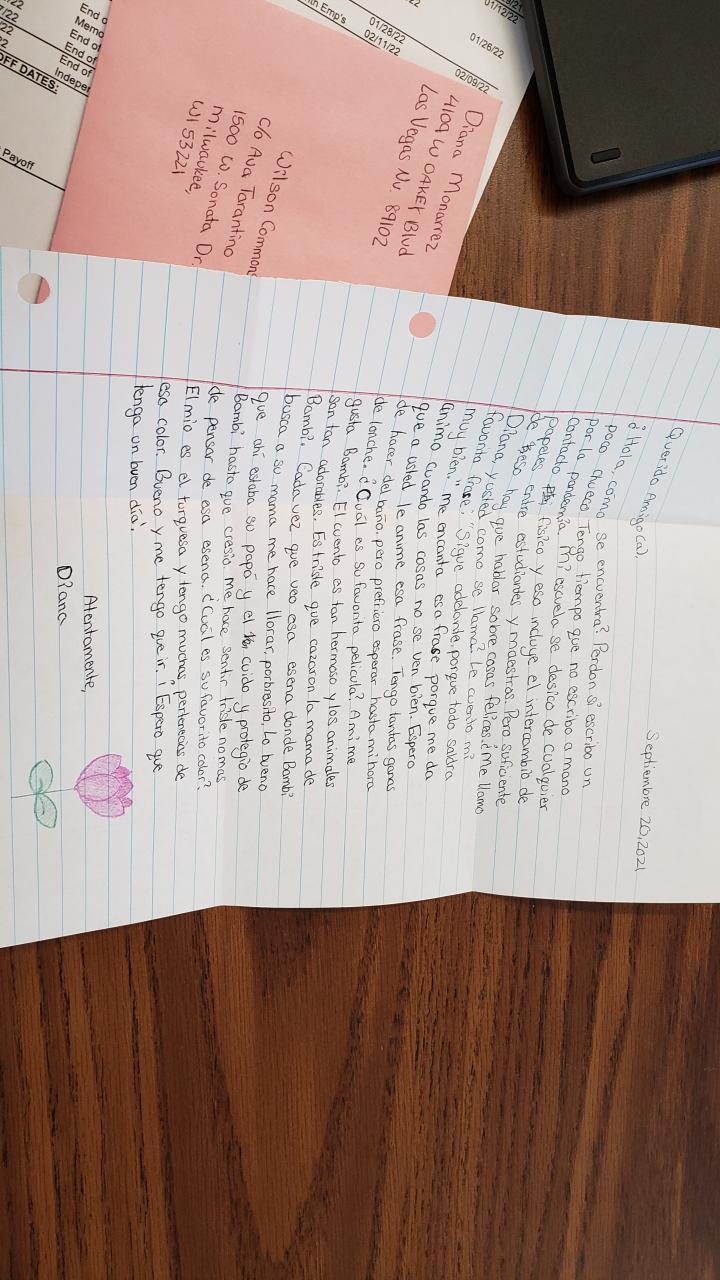 Septiembre 20, 2021
Querido Amigo(a),
¿Hola, como se encuentra? Perdon si escribo un
poco chueco. Tengo tiempo que no escribo a mano
por la pandemia. Mi escuela se desico de cualquier
contacto fisico y eso incluye el intercambio de
papeles entre estudiantes y maestros. Pero suficiente
de eso hay que hablar sobre cosas felices. ¿Me llamo
Diana y usted como se llama? Le cuento mi
favorita frase: "Sigue adelante, porque todo saldra
muy bien." me encanta esa frase porque me da
animo cuando las cosas no se ven bien. Espero
que a usted le anime esa frase. Tengo tantas ganas
de hacer del baño, pero prefiero esperar hasta mi hora
de lonche. ¿Cuál es su favorita pelicula? A mi me
gusta Bambi. El cuento es tan hermoso y los animales
son tan adorables. Es triste que cazaron la mama de
Bambi. Cada vez que veo esa esena donde Bambi
busca a su mama me hace llorar, porbresito. Lo bueno
que ahí estaba su papá y el cuido y protegio de
Bambi hasta que cresio. me hace sentir triste no mas
de pensar de esa esena. ¿Cuál es su favorito color?
El mio es el turquesa y tengo muchas pertenecias de
esa color. Bueno y me tengo que ir. ¡Espero que
tenga un buen día!
Atentamente,
Diana
Diana Monarrez
4109 W OAKEY Blvd
Las Vegas Nv. 89102
Wilson Commons
c/o Ava Tarantino
1500 W. Sonata Dr.
Milwaukee,
WI 53221
01/28/22
02/11/22
01/12/22
01/26/22
02/09/22
End of
End of
End of
OFF DATES:
Payoff